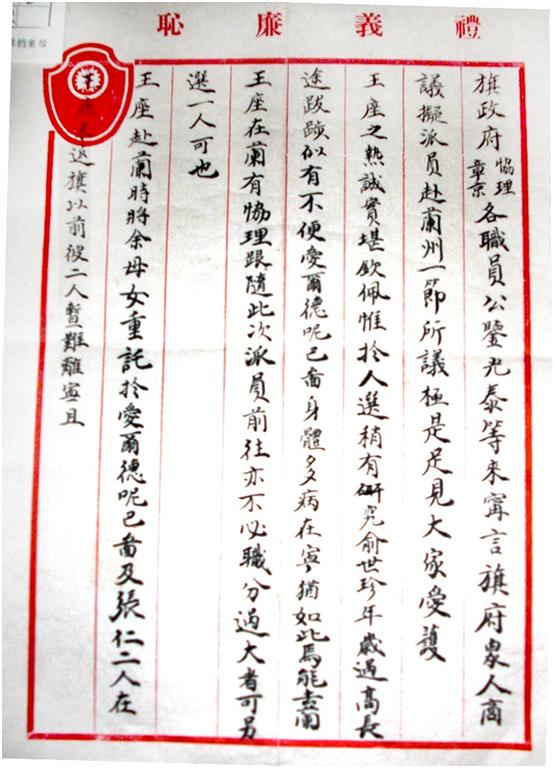 禮義廉恥
旗政府協理章京各職員公鑒尤泰等來寗言旗府眾人商
議擬派員赴蘭州一節所議極是足見大家愛護
王座之熱誠實堪欽佩惟於人選稍有研究俞世珍年歲過高長
途跋踄似有不便愛爾德呢已啚身體多病在寗猶如此焉能去蘭
王座在蘭有協理跟隨此次派員前往亦不必職分過大者可另
選一人可也
王座赴蘭時將余母女重託於愛爾德呢已啚及張仁二人在
王座未返旗以前彼二人暫難離寗且